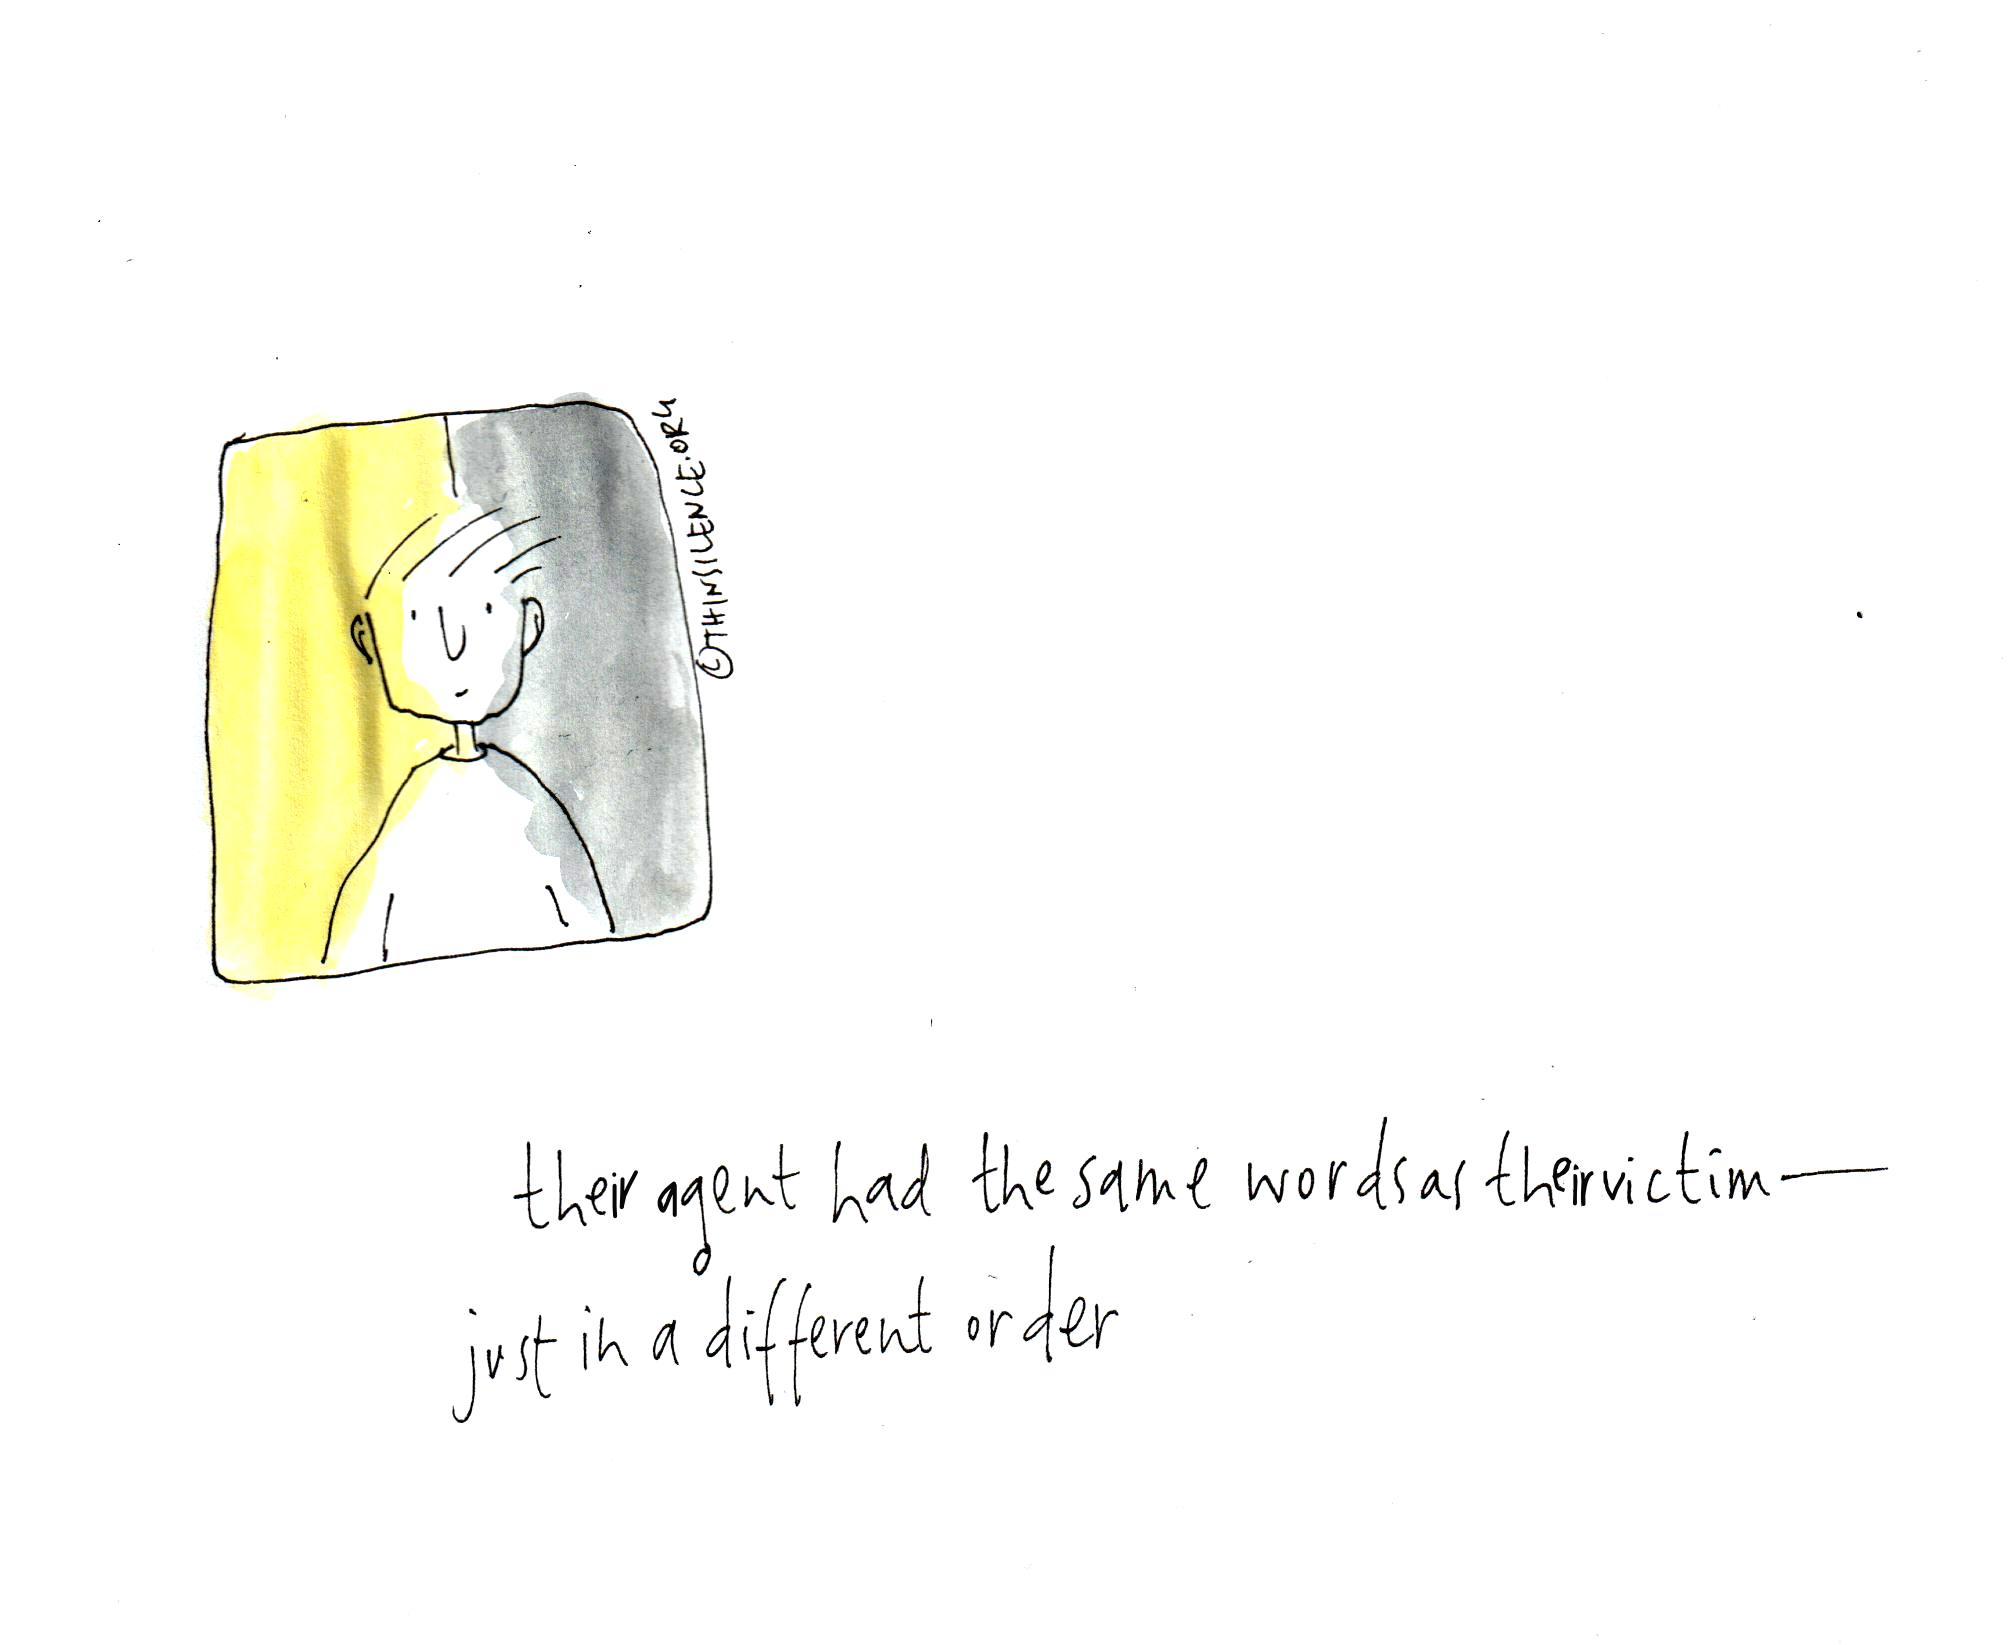 ©THINSILENCE.ORG
their agent had the same words as their victim—
just in a different order